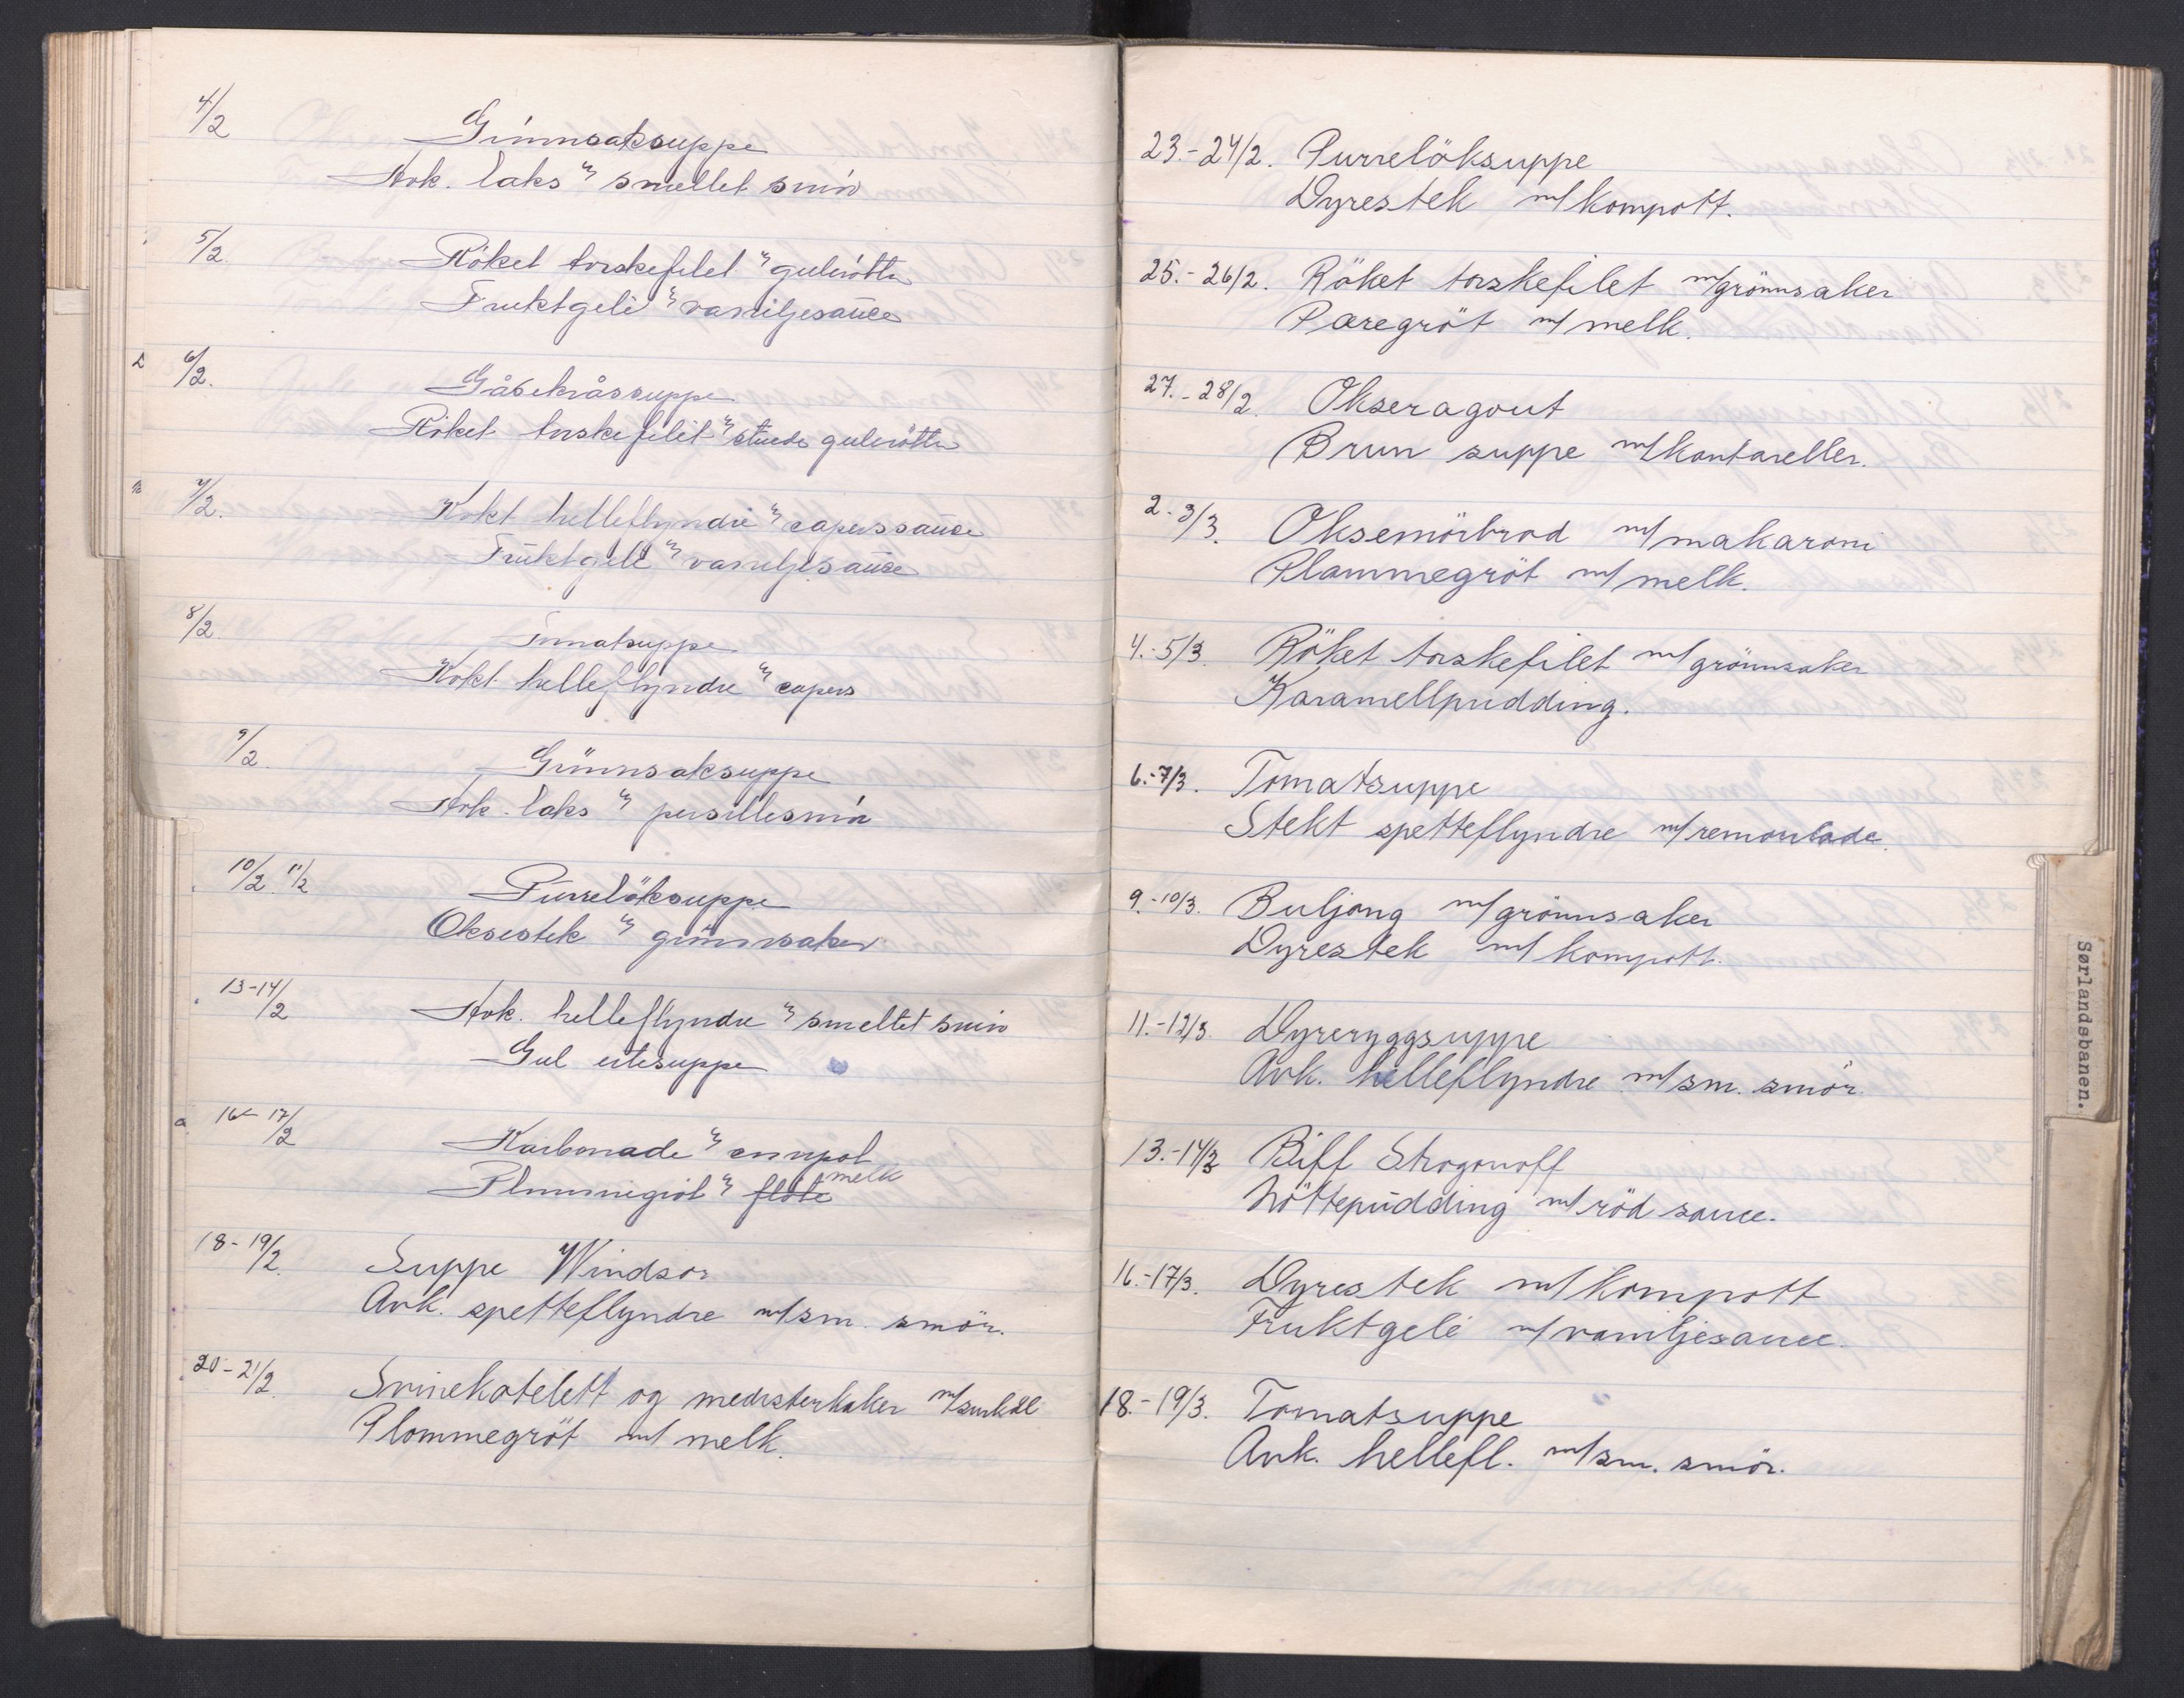 4/2 Grönnsaksuppe
Avk. laks m/ smeltet smör
5/2. Röket torskefilet m/ gulerötter
Fruktgelé m/ vaniljesauce
6/2. Gåsekråssuppe
Röket torskefilet m/ stuede gulerötter
7/2. Kokt helleflyndre m/ caperssauce
Fruktgelé m/ vaniljesauce
8/2 Tomatsuppe
Kokt helleflyndre m/ capers
9/2. Grönnsaksuppe
Avk. laks m/ persillesmör
10/2. 11/2 Purrelöksuppe
Oksestek m/ grönnsaker
13-14/2 Avk. helleflyndre m/ smeltet smör
Gul ertesuppe
16-17/2 Karbonade m/ ertepol
Plommegröt m/ flöte melk
18-19/2. Suppe Windsor
Avk. spetteflyndre m/sm. smör.
20-21/2. Svinekotelett og medisterkaker m/surkål
Plommegröt m/ melk.
23.-24/2. Purrelöksuppe
Dyrestek m/kompott.
25.-26/2. Röket torskefilet m/grönnsaker
Pæregröt m/ melk.
27.-28/2. Okseragout
Brun suppe m/kantareller.
2.-3/3. Oksemörbrad m/makaroni
Plommegröt m/ melk.
4.-5/3. Röket torskefilet m/grönnsaker
Karamellpudding.
6.-7/3. Tomatsuppe
Stekt spetteflyndre m/remoulade.
9.-10/3. Buljong m/grönnsaker
Dyrestek m/ kompott.
11.-12/3. Dyreryggsuppe
Avk. helleflyndre m/sm. smör.
13.-14/3 Biff Strogonoff
Nöttepudding m/röd sauce.
16.-17/3. Dyrestek m/kompott
Fruktgelé m/vaniljesauce.
18.-19/3. Tomatsuppe
Avk. hellefl. m/sm. smör.
Sørlandsbanen.